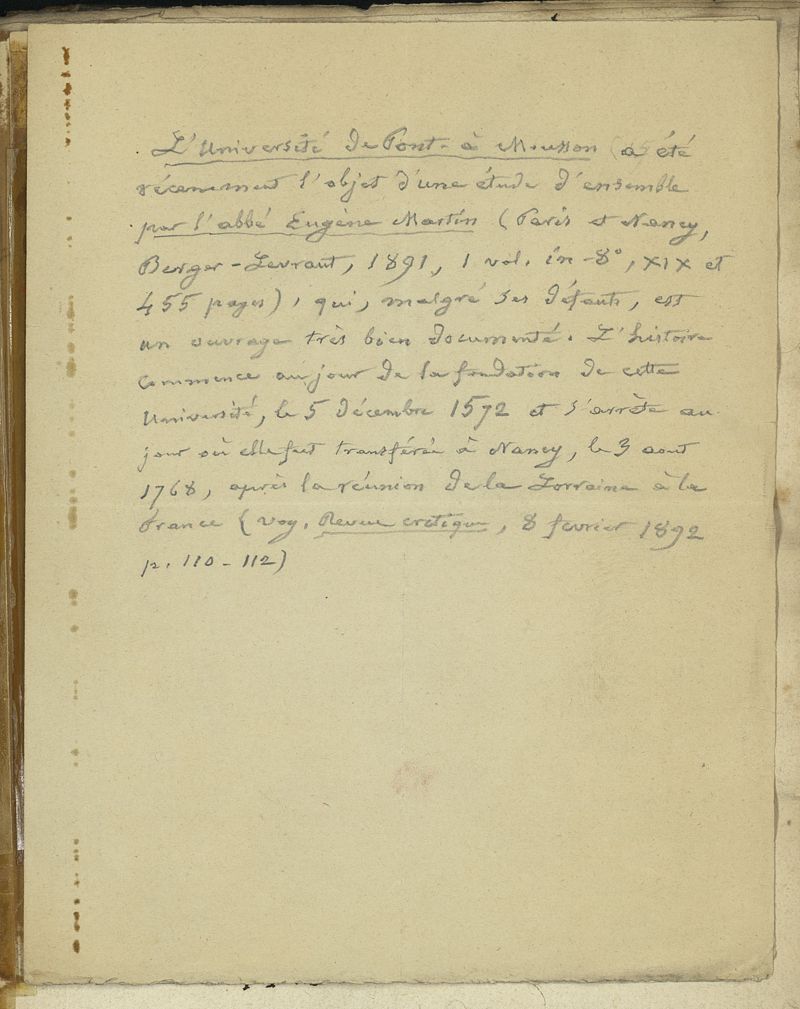 L'Université de Pont-à Mousson a été
récemment l'objet d'une étude d'ensemble
par l'abbé Eugène Martin (Paris et Nancy,
Berger-Levrault, 1891, 1 vol. in-8°, XIX et
455 pages), qui, malgré ses défauts, est
un ouvrage très bien documenté. L'histoire
commence au jour de la fondation de cette
Université, le 5 décembre 1572 et s'arrête au
jour où elle fut transférée à Nancy, le 3 aout
1768, après la réunion de la Lorraine à la
France (voy. Revue critique, 8 fevrier 1892
p. 110-112)